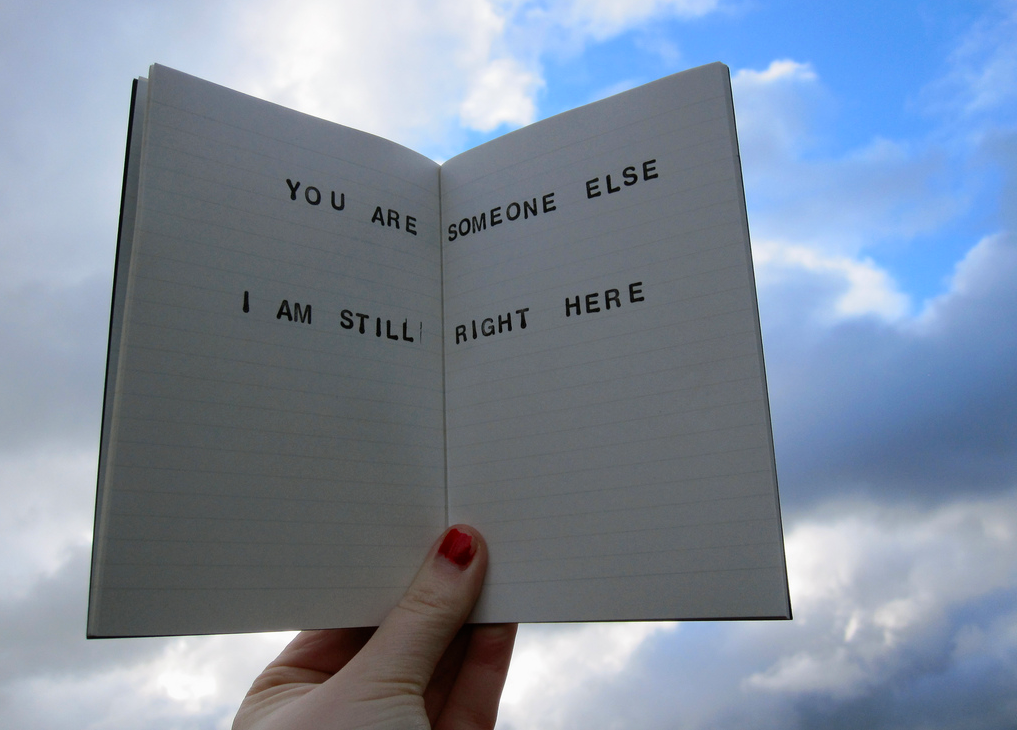 YOU ARE SOMEONE ELSE
I AM STILL RIGHT HERE